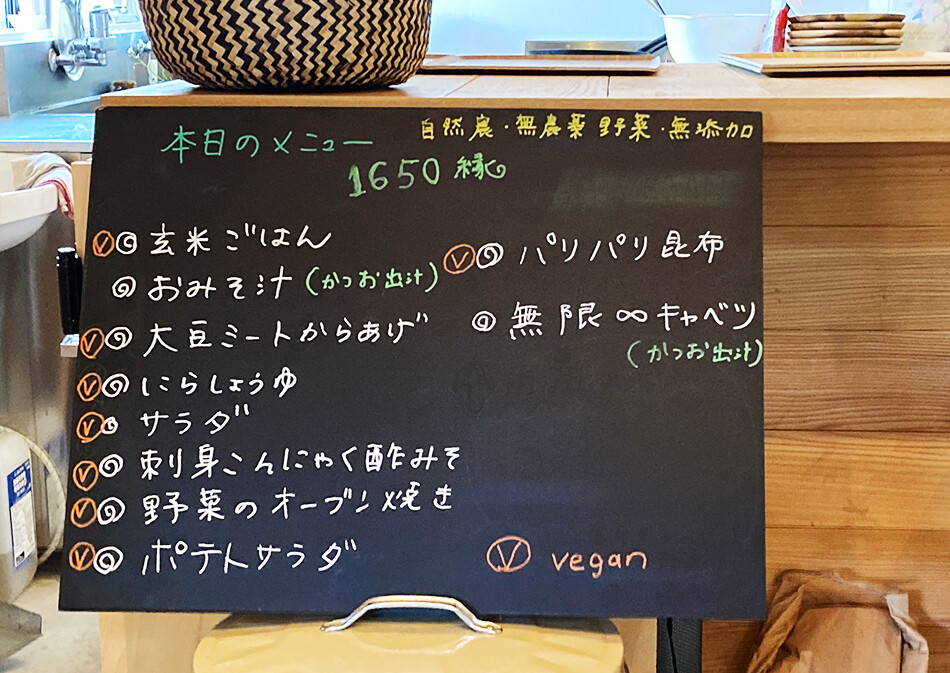 本日のメニュー
自然農・無農薬野菜・無添加
1650縁
Ⓥ◎玄米ごはん
◎おみそ汁(かつお出汁)
Ⓥ◎大豆ミートからあげ
Ⓥ◎にらしょうゆ
Ⓥ◎サラダ
Ⓥ◎刺身こんにゃく酢みそ
Ⓥ◎野菜のオーブン焼き
Ⓥ◎ポテトサラダ
Ⓥ◎パリパリ昆布
◎無限∞キャベツ
(かつお出汁)
Ⓥ vegan